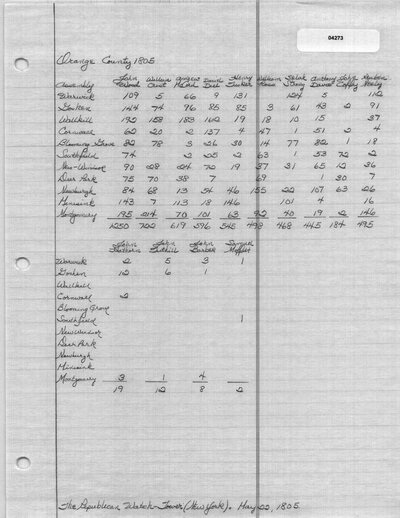 04273
Orange County 1805
Assembly John Wood William Andrew McCord David Dill Henry Tucker William Ross Selah Strong Anthony Davis John Coffey Reuben Neely
Warwick 109 5 66 9 131 124 5 112
Goshen 144 74 96 85 85 3 61 43 2 91
Wallkill 192 158 183 162 19 18 10 15 37
Cornwall 62 20 2 137 4 47 1 51 2 4
Blooming Grove 82 78 3 26 30 14 77 82 1 18
Southfield 74 2 25 2 63 1 53 72 2
New-Windsor 90 28 24 72 19 37 31 65 12 36
Deer Park 75 70 38 7 69 1 30 7
Newburgh 84 68 13 54 46 155 22 107 63 26
Minisink 143 7 113 18 146 101 4 16
Montgomery 195 214 70 101 63 92 40 19 2 146
1250 722 619 596 545 498 468 445 184 495
John Hathorn John Tuthill John Barber Samuel Moffet
Warwick 2 5 3 1
Goshen 12 6 1
Wallkill
Cornwall 2
Blooming Grove
Southfield 1
New Windsor
Deer Park
Newburgh
Minisink
Montgomery 3 1 4
19 12 8 2
The Republican Watch-Tower (New York). May 22, 1805.